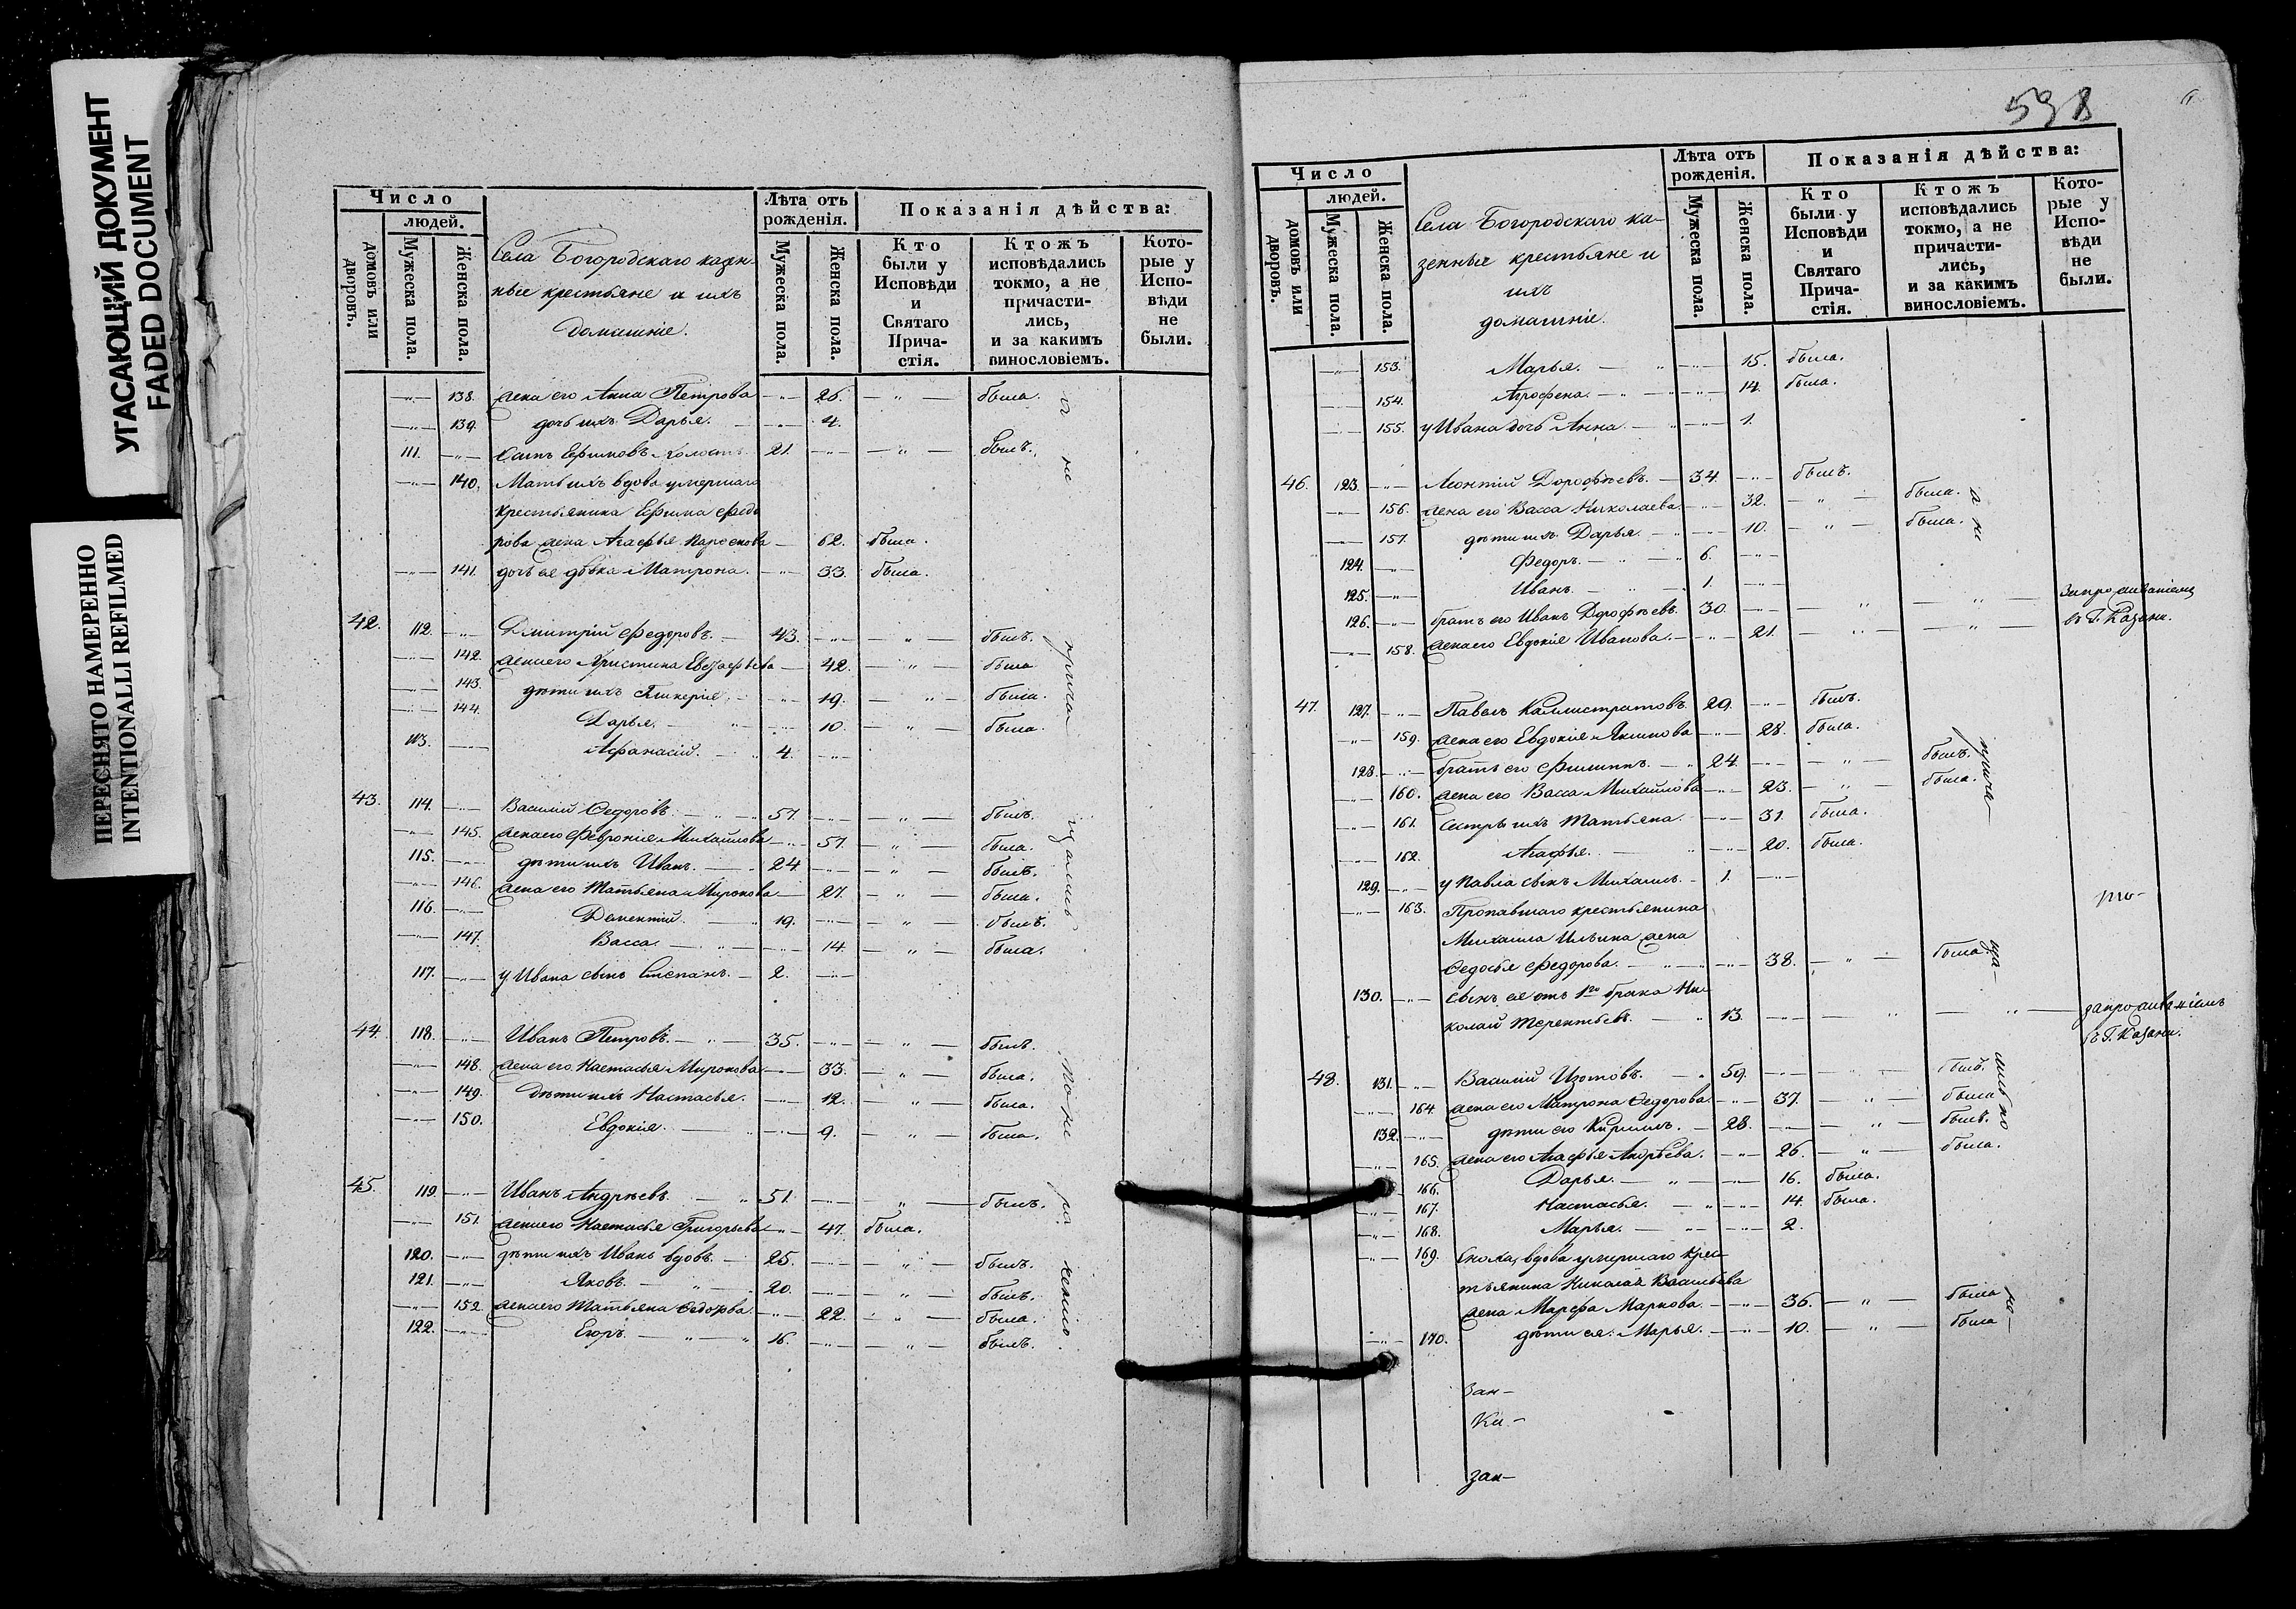 УГАСАЮЩИЙ ДОКУМЕНТ
FADED DOCUMENT
ПЕРЕСНЯТО НАМЕРЕННО
INTENTIONALLI REFILMED
Число
людей.
домовъ или дворовъ.
Мужеска пола.
Женска пола.
Села Богородскаго казен-
ные крестьяне и ихъ
домашніе.
Лѣта отъ рожденія.
Мужеска пола.
Женска пола.
Показанія дѣйства:
Кто были у Исповѣди и Святаго Прича-стія.
Ктожъ исповѣдались токмо, а не причасти-лись, и за какимъ винословіемъ.
Кото-рые у Испо-вѣди не были.
138. жена его Анна Петрова 26. была.
139. дочь ихъ Дарья. 4.
111. Ефимовъ холостъ 21. былъ.
140. Мать ихъ вдова умершаго
крестьянина Ефима Федо
рова жена Агафья 62. была.
141. дочь ея дѣвка Матрона. 33. была.
42. 112. Дмитрій Федоровъ. 43. былъ.
142. жена его Христина 42. была
143. дѣти ихъ Гликерія. 19. была.
144. Дарья. 10. была.
113. Афанасій. 4.
43. 114. Василій Федоровъ. 57. былъ.
145. жена его Февронія Михайлова 57. была.
115. дѣти ихъ Иванъ. 24. былъ.
146. жена его Татьяна Миронова 27. была.
116. Дементій. 19. былъ.
147. Васса. 14. была.
117. у Ивана сынъ Степанъ. 2.
44. 118. Иванъ Петровъ. 35. былъ.
148. жена его Настасья Миронова 33. была.
149. дѣти ихъ Настасья. 12. была.
150. Евдокія. 9. была.
45. 119. Иванъ Андреевъ. 51. былъ.
151. жена его Настасья Григорьева 47. была.
120. дѣти ихъ Иванъ вдовъ. 25. былъ.
121. Яковъ. 20. былъ.
152. жена его Татьяна Федорова. 22. была.
122. Егоръ. 16. былъ.
а не прича щались по не ра чению.
598
Число
людей.
домовъ или дворовъ.
Мужеска пола.
Женска пола.
Села Богородскаго ка-
зенные крестьяне и
ихъ
домашніе.
Лѣта отъ рожденія.
Мужеска пола.
Женска пола.
Показанія дѣйства:
Кто были у Исповѣди и Святаго Прича-стія.
Ктожъ исповѣдались токмо, а не причасти-лись, и за какимъ винословіемъ.
Кото-рые у Испо-вѣди не были.
153. Марья. 15. была.
154. Агрофена. 14. была.
155. у Ивана дочь Анна. 1.
46. 123. Леонтій Дорофѣевъ. 34. былъ.
156. жена его Васса Николаева. 32. была.
157. дѣти ихъ Дарья. 10. была.
124. Федоръ. 6.
125. Иванъ. 1.
126. братъ его Иванъ Дорофѣевъ 30.
158. жена его Евдокія Иванова. 21. въ Г. Казани.
47. 127. Павелъ Каллистратовъ 29. былъ.
159. жена его Евдокія Якимова 28. была.
128. братъ его Филиппъ. 24. былъ.
160. жена его Васса Михайлова 23. была.
161. сестры ихъ Татьяна. 31. была.
162. Агафья. 20. была.
129. у Павла сынъ Михаилъ. 1.
163. Пропавшаго крестьянина
Михаила Ильина жена
Федосья Федорова. 38. была.
130. сынъ ея отъ 1го брака Ни
колай Терентьевъ. 13. въ Г. Казани.
48. 131. Василій Изотовъ. 59. былъ.
164. жена его Матрона Федорова. 37. была
132. дѣти его Кириллъ. 28. былъ.
165. жена его Агафья Андрѣева. 26. была.
166. Дарья. 16. была.
167. Настасья. 14. была.
168. Марья. 2.
169. Сноха, вдова умершаго крес
тьянина Николая Васильева
жена Марфа Маркова. 36. была
170. дѣти ея: Марья. 10. была
а не
прича-
ща-
лись по
не-